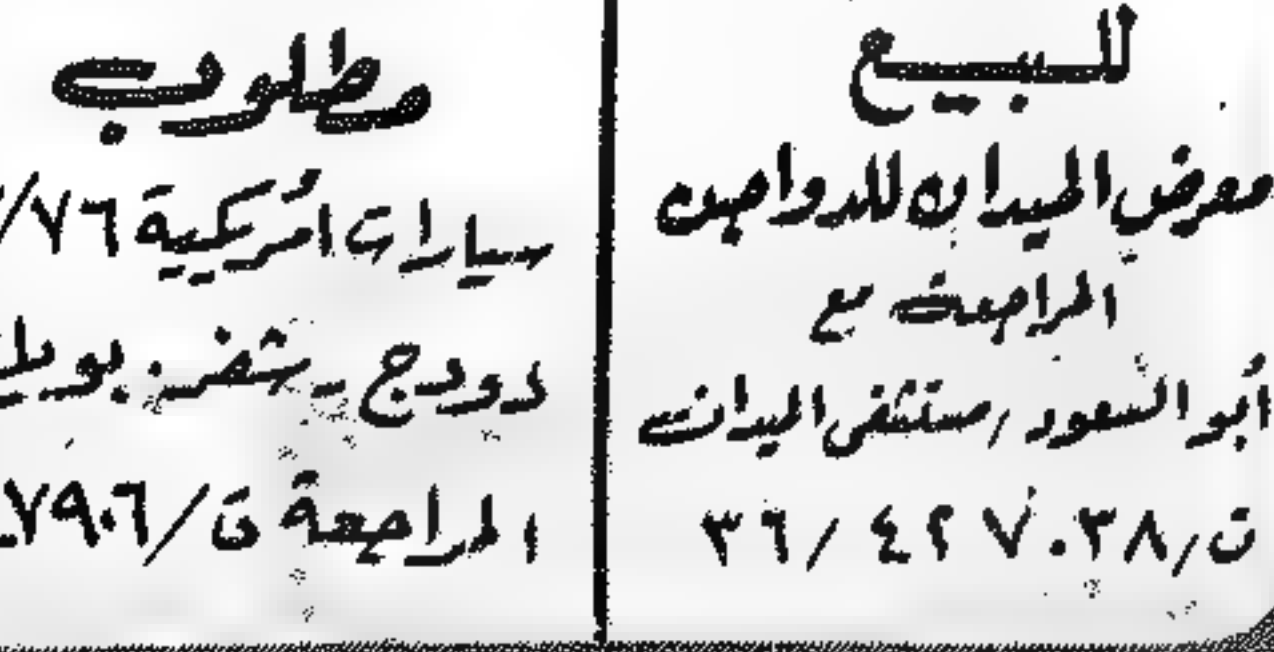 للبيع
معرض الميدان للدواجن
المراجعة مع
أبو السعود / مستشفى الميدان
ت / ٣٨ ٧٠٣ ٤٢ / ٣٦
مطلوب
سيارات امريكية ٧٦/
دودج
المراجعة ت / ٧٩٠٦